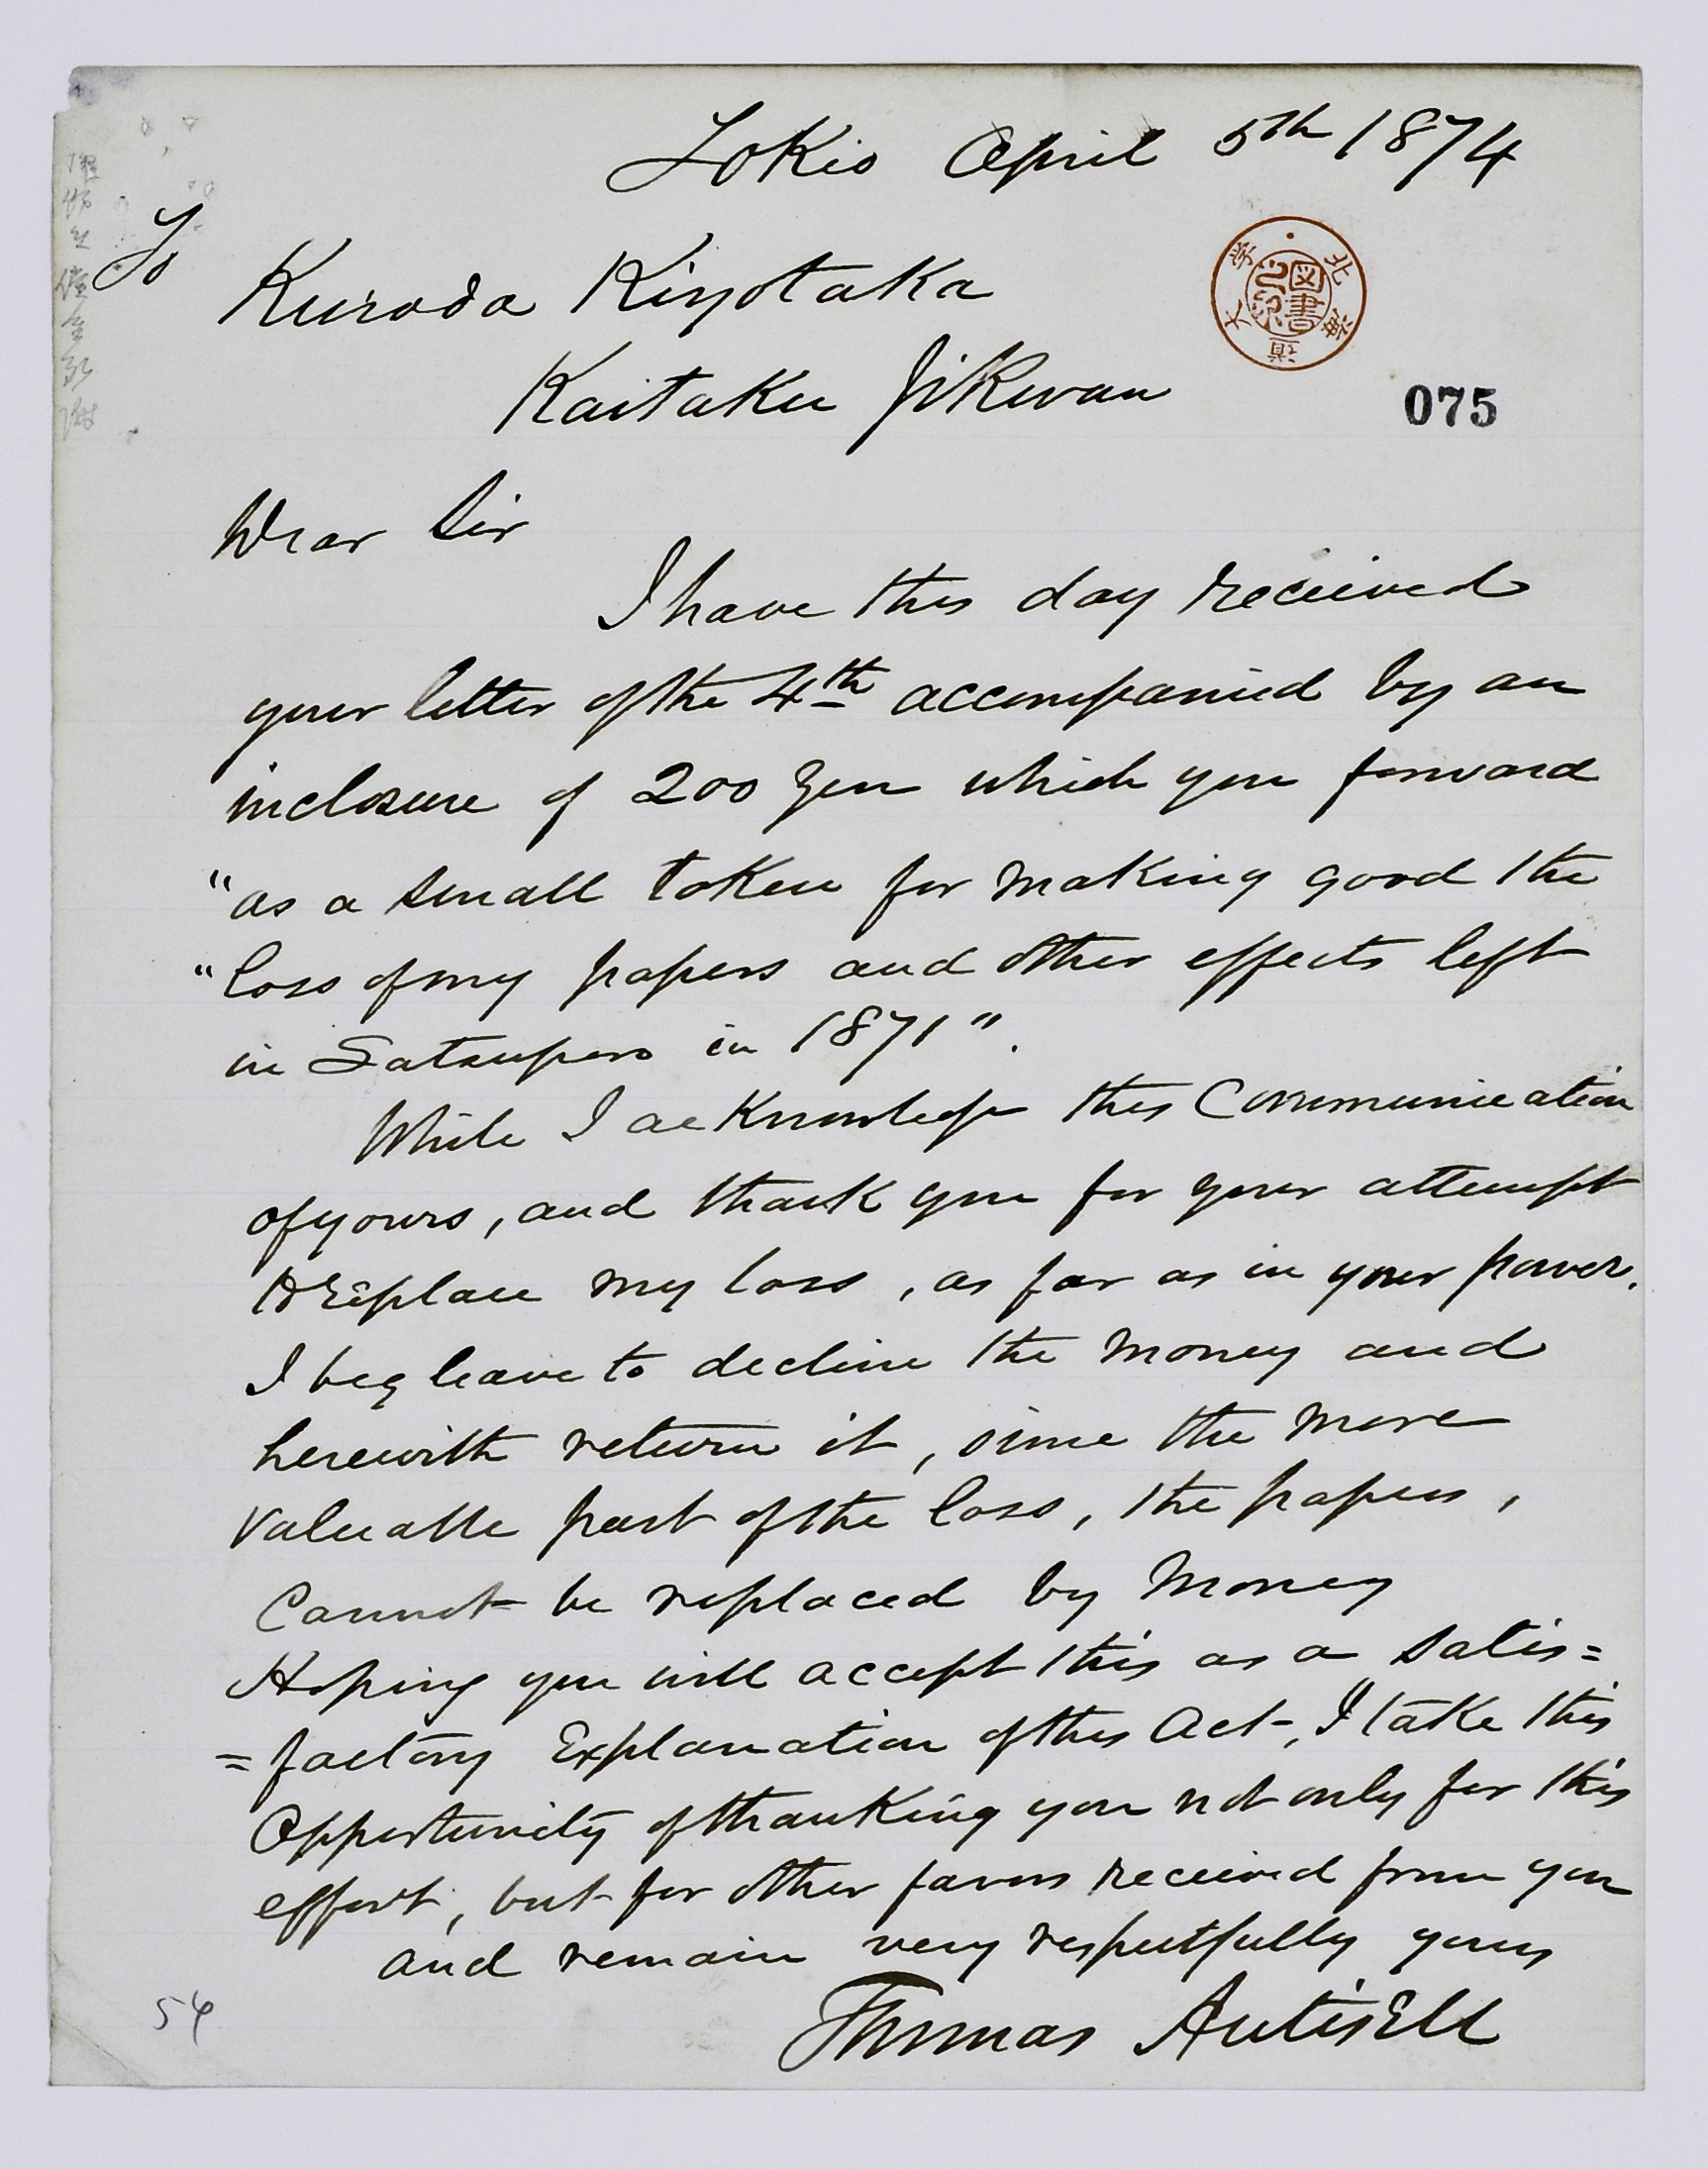 Tokio April 5th 1874
To
Kuroda Kiyotaka
Kaitaku Jikwan
北海道大学
図書之印
075
Dear Sir
I have this day received
your letter of the 4th accompanied by an
inclosure of 200 Yen which you forward
"as a small token for making good the
"loss of my papers and other effects left
in Satsuporo in 1871".
While I acknowledge this Communication
of yours, and thank you for your attempt
to replace my loss, as far as in your power.
I beg leave to decline the money and
herewith return it, since the more
valuable part of the loss, the papers,
Cannot be replaced by Money
Hoping you will accept this as a satis=
=factory Explanation of this Act, I take this
Opportunity of thanking you not only for this
effort, but for other favors received from you
and remain very respectfully yours
Thomas Antisell
54